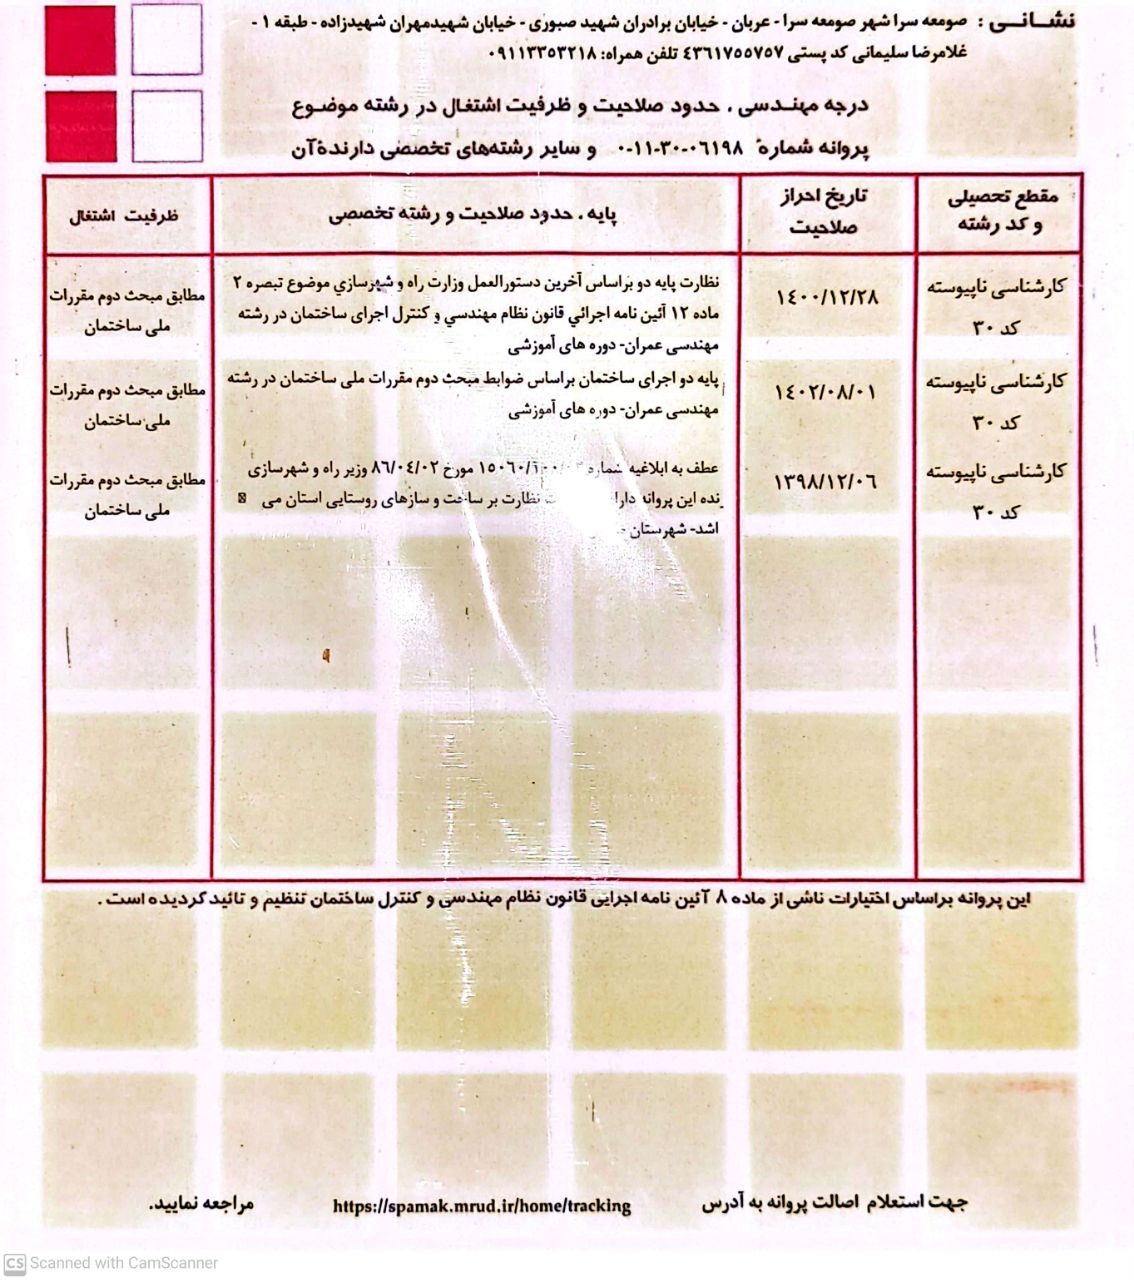 نشـانـی : صومعه سرا شهر صومعه سرا - عربان - خیابان برادران شهید صبوری - خیابان شهیدمهران شهیدزاده - طبقه ۱ -
غلامرضا سلیمانی کد پستی ۴۳۶۱۷۵۵۷۵۷ تلفن همراه: ۰۹۱۱۳۳۵۳۲۱۸
درجه مهندسی ، حدود صلاحیت و ظرفیت اشتغال در رشته موضوع
پروانه شماره ۰۶۱۹۸-۳۰-۱۱-۰ و سایر رشته‌های تخصصی دارندهٔ آن
مقطع تحصیلی و کد رشته
تاریخ احراز صلاحیت
پایه ، حدود صلاحیت و رشته تخصصی
ظرفیت اشتغال
کارشناسی ناپیوسته
کد ۳۰
۱۴۰۰/۱۲/۲۸
نظارت پایه دو براساس آخرین دستورالعمل وزارت راه و شهرسازي موضوع تبصره ۲
ماده ۱۲ آئین نامه اجرائي قانون نظام مهندسي و کنترل اجرای ساختمان در رشته
مهندسی عمران- دوره های آموزشی
مطابق مبحث دوم مقررات
ملی ساختمان
کارشناسی ناپیوسته
کد ۳۰
۱۴۰۲/۰۸/۰۱
پایه دو اجرای ساختمان براساس ضوابط مبحث دوم مقررات ملی ساختمان در رشته
مهندسی عمران- دوره های آموزشی
مطابق مبحث دوم مقررات
ملی ساختمان
کارشناسی ناپیوسته
کد ۳۰
۱۳۹۸/۱۲/۰۶
عطف به ابلاغیه شماره ۱۵۰۶۰/۱۰۰/۰۲ مورخ ۸۶/۰۴/۰۲ وزیر راه و شهرسازی
نده این پروانه دارا نظارت بر ساخت و سازهای روستایی استان می
اشد- شهرستان -
مطابق مبحث دوم مقررات
ملی ساختمان
این پروانه براساس اختیارات ناشی از ماده ۸ آئین نامه اجرایی قانون نظام مهندسی و کنترل ساختمان تنظیم و تائید گردیده است .
جهت استعلام اصالت پروانه به آدرس https://spamak.mrud.ir/home/tracking مراجعه نمایید.
CS Scanned with CamScanner